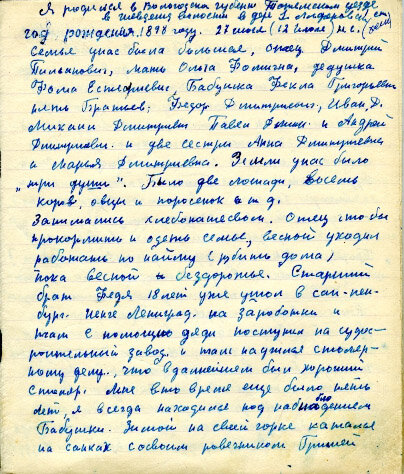 Я родился в Вологодской губернии Тотемском уезде
в волости в дер.
год рождения 1898 году. 27 июля (12 июля) н.с. (ст.
Семья у нас была большая, отец Дмитрий
мать Ольга Фомична, дедушка
Фома бабушка Фекла Григорьевна
пять Братьев; Федор Дмитриевич, Иван Д.
Михаил Дмитриевич Павел Дмит. и Андрей
Дмитриевич. и две сестры Анна Дмитриевна
и Марья Дмитриевна. Земли у нас было
„три души". Было две лошади, восемь
коров, овцы и поросенок и т д.
Занимались хлебопашеством. Отец что бы
прокормить и одеть семью, весной уходил
работать по найму (рубить дома)
пока весной бездорожье. Старший
брат Федя 18 лет уже ушол в сан-пен-
бург. Ленеград. на заработки и
там с помощью дяди поступил на судо-
роительный завод. и там научился столяр-
ному делу, что в дальнейшем был хороший
столяр. Мне в то время еще было пять
лет, я всегда находился под наблюдением
Бабушки. Зимой на своей горке катался
на санках со своим ровесником Гришей